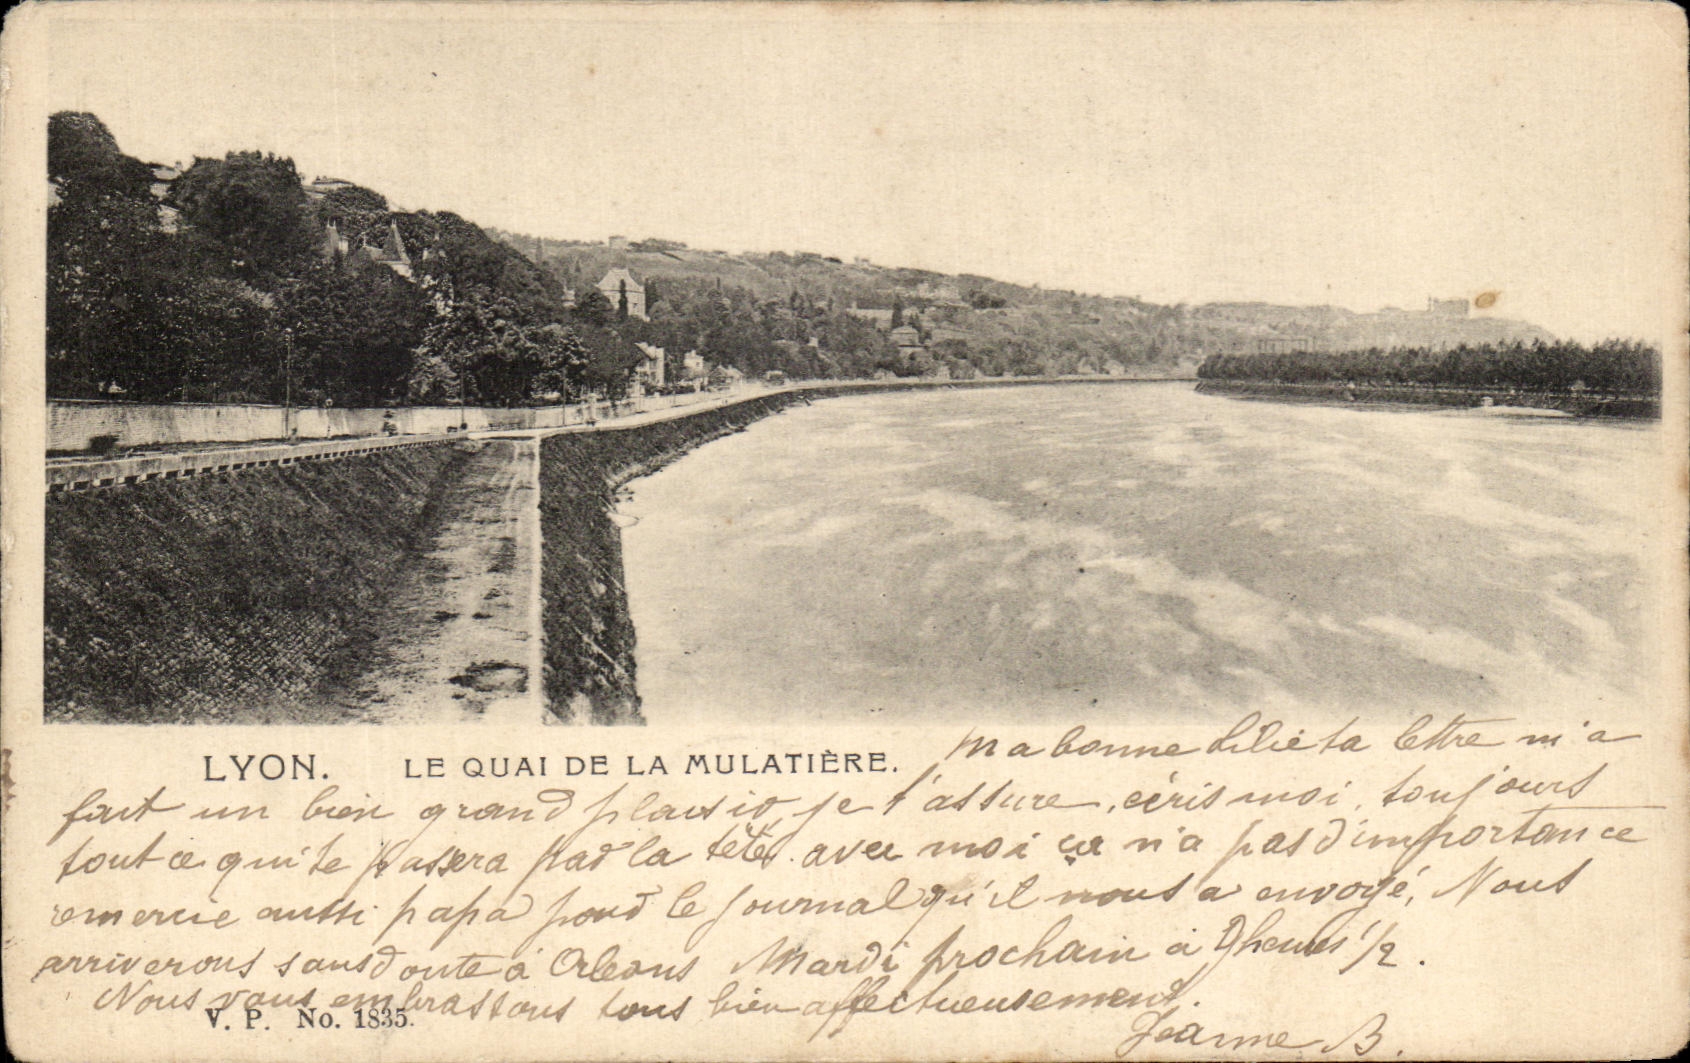 LYON. LE QUAI DE LA MULATIÈRE.
Ma bonne Lilie ta lettre m'a
fait un bien grand plaisir, je t'assure, écris moi, toujours
tout ce qui te passera par la tête avec moi ça n'a pas d'importance
remercie aussi papa pour le journal qu'il nous a envoyé, Nous
arriverons sans doute à Orléans Mardi prochain à heures 1/2.
Nous vous embrassons tous bien affectueusement.
Jeanne B.
V. P. No. 1835.